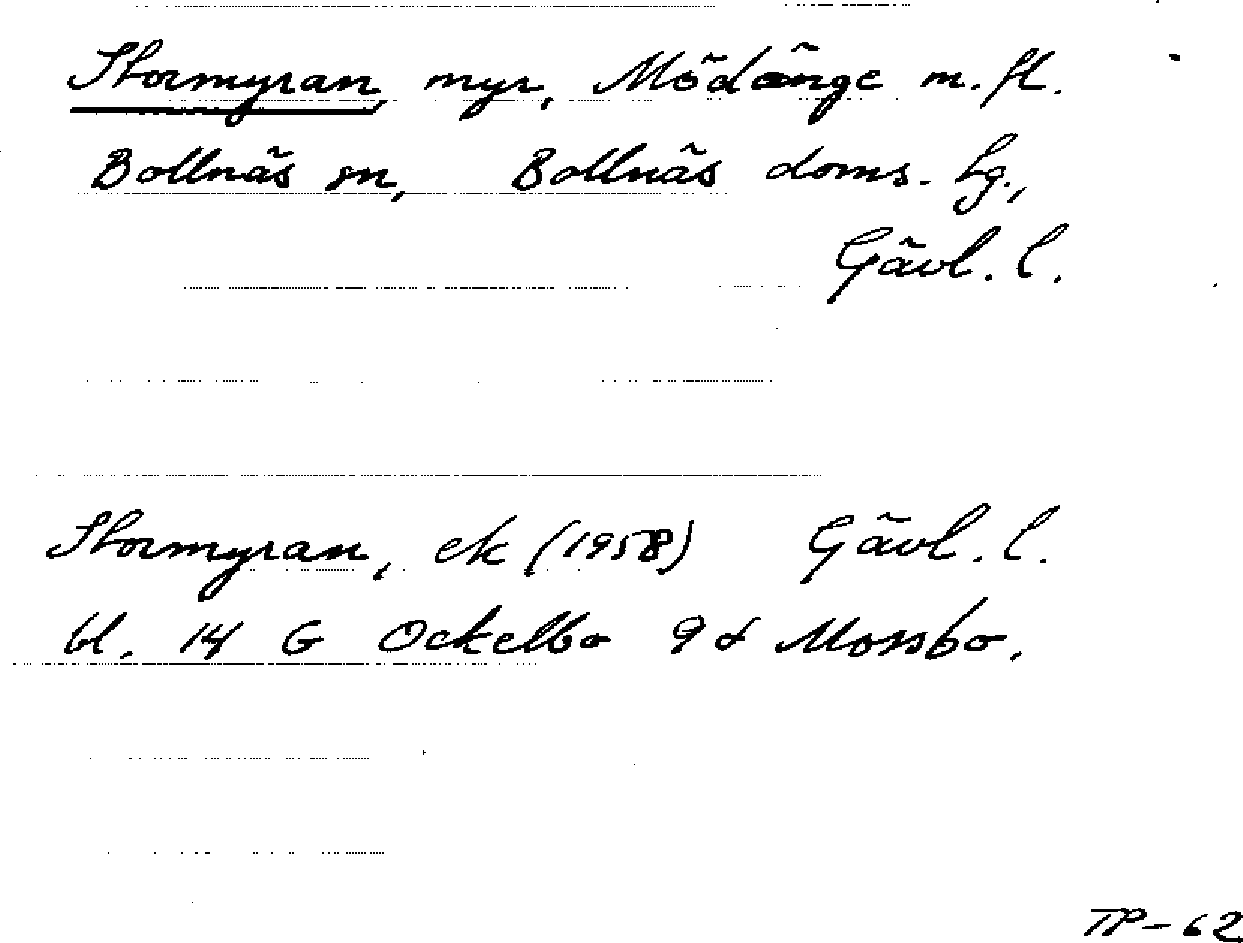 Stormyran, myr, Mödänge m. fl.
Bollnäs sn, Bollnäs doms. hg.,
Gävl. l.
Stormyran, ek (1958) Gävl. l.
bl. 14 G Ockelbo 9d Mossbo.
TP-62